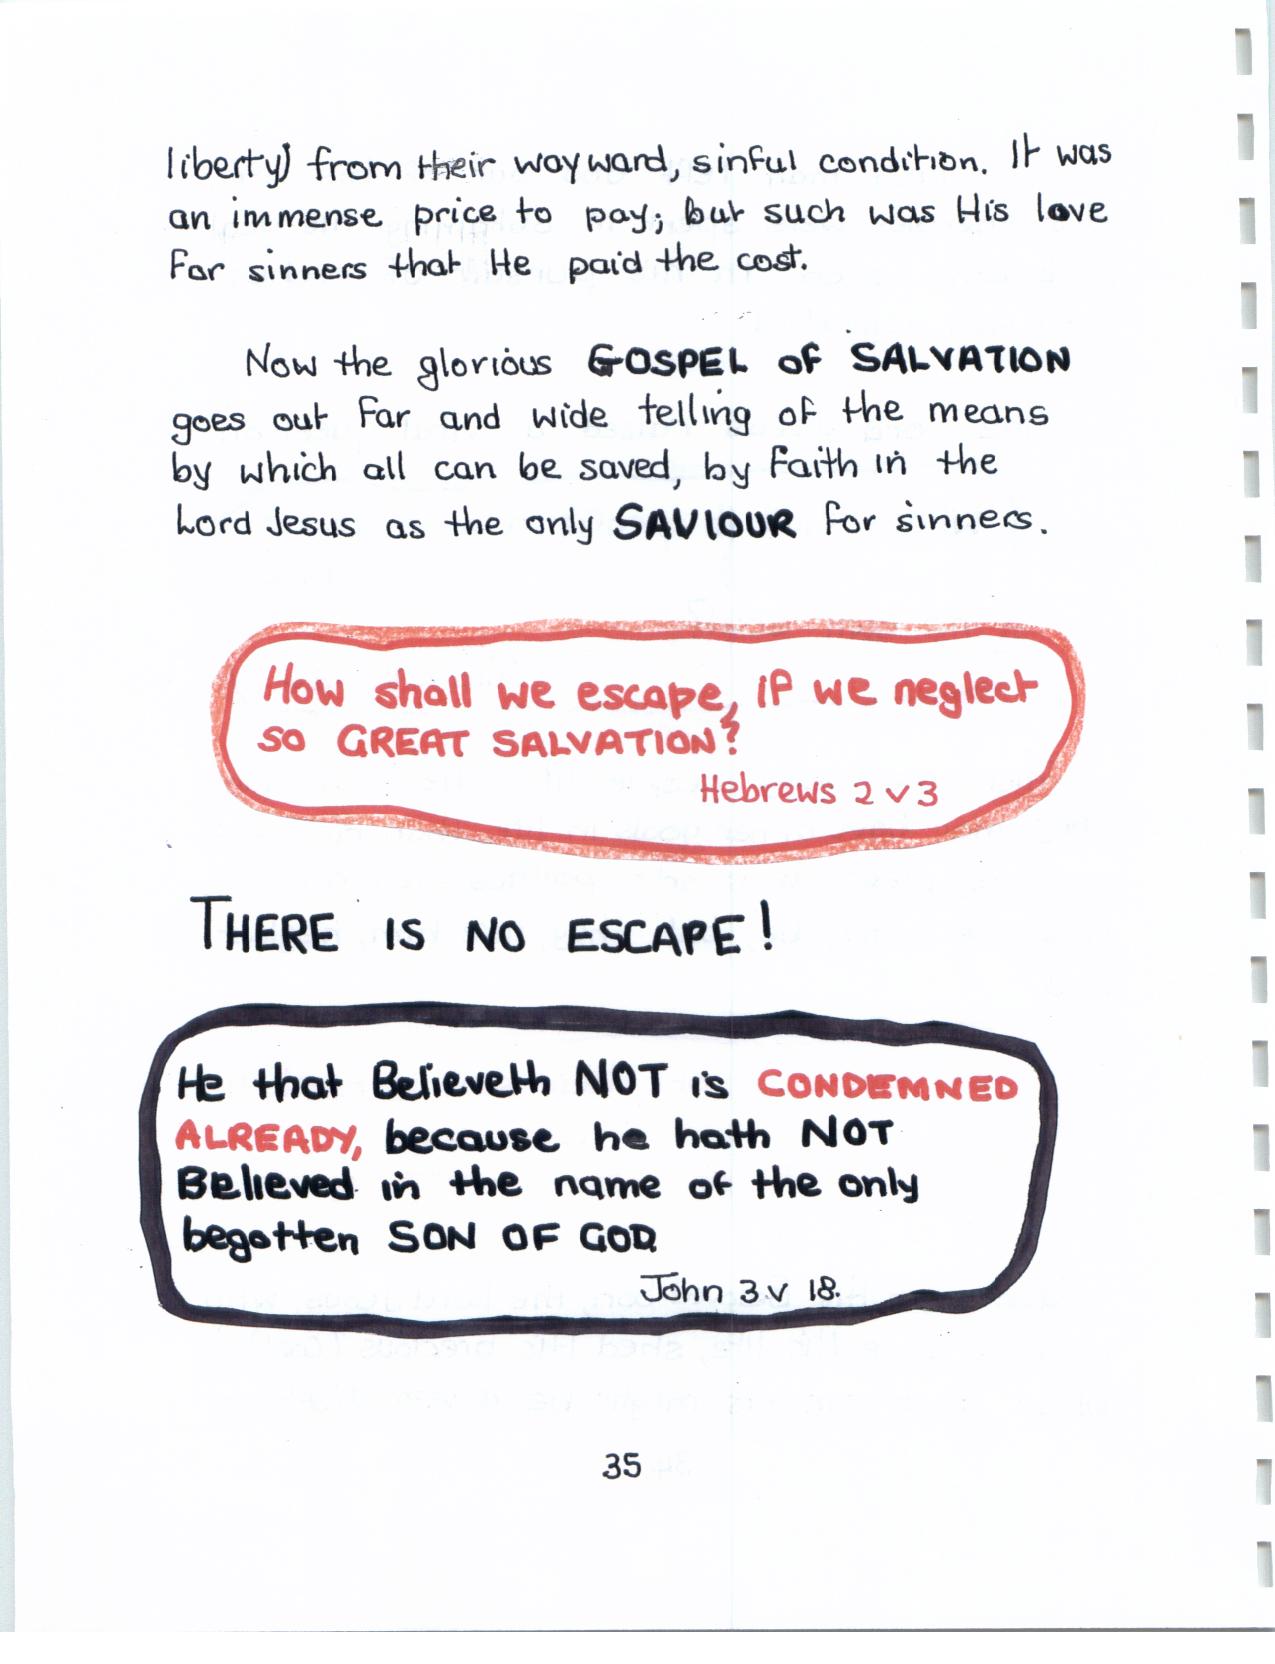 liberty) from their wayward, sinful condition. It was
an immense price to pay; but such was His love
for sinners that He paid the cost.
Now the glorious GOSPEL of SALVATION
goes out far and wide telling of the means
by which all can be saved, by faith in the
Lord Jesus as the only SAVIOUR for sinners.
How shall we escape, if we neglect
so GREAT SALVATION?
Hebrews 2 v 3
THERE IS NO ESCAPE!
He that Believeth NOT is CONDEMNED
ALREADY, because he hath NOT
Believed in the name of the only
begotten SON OF GOD.
John 3.v 18.
35